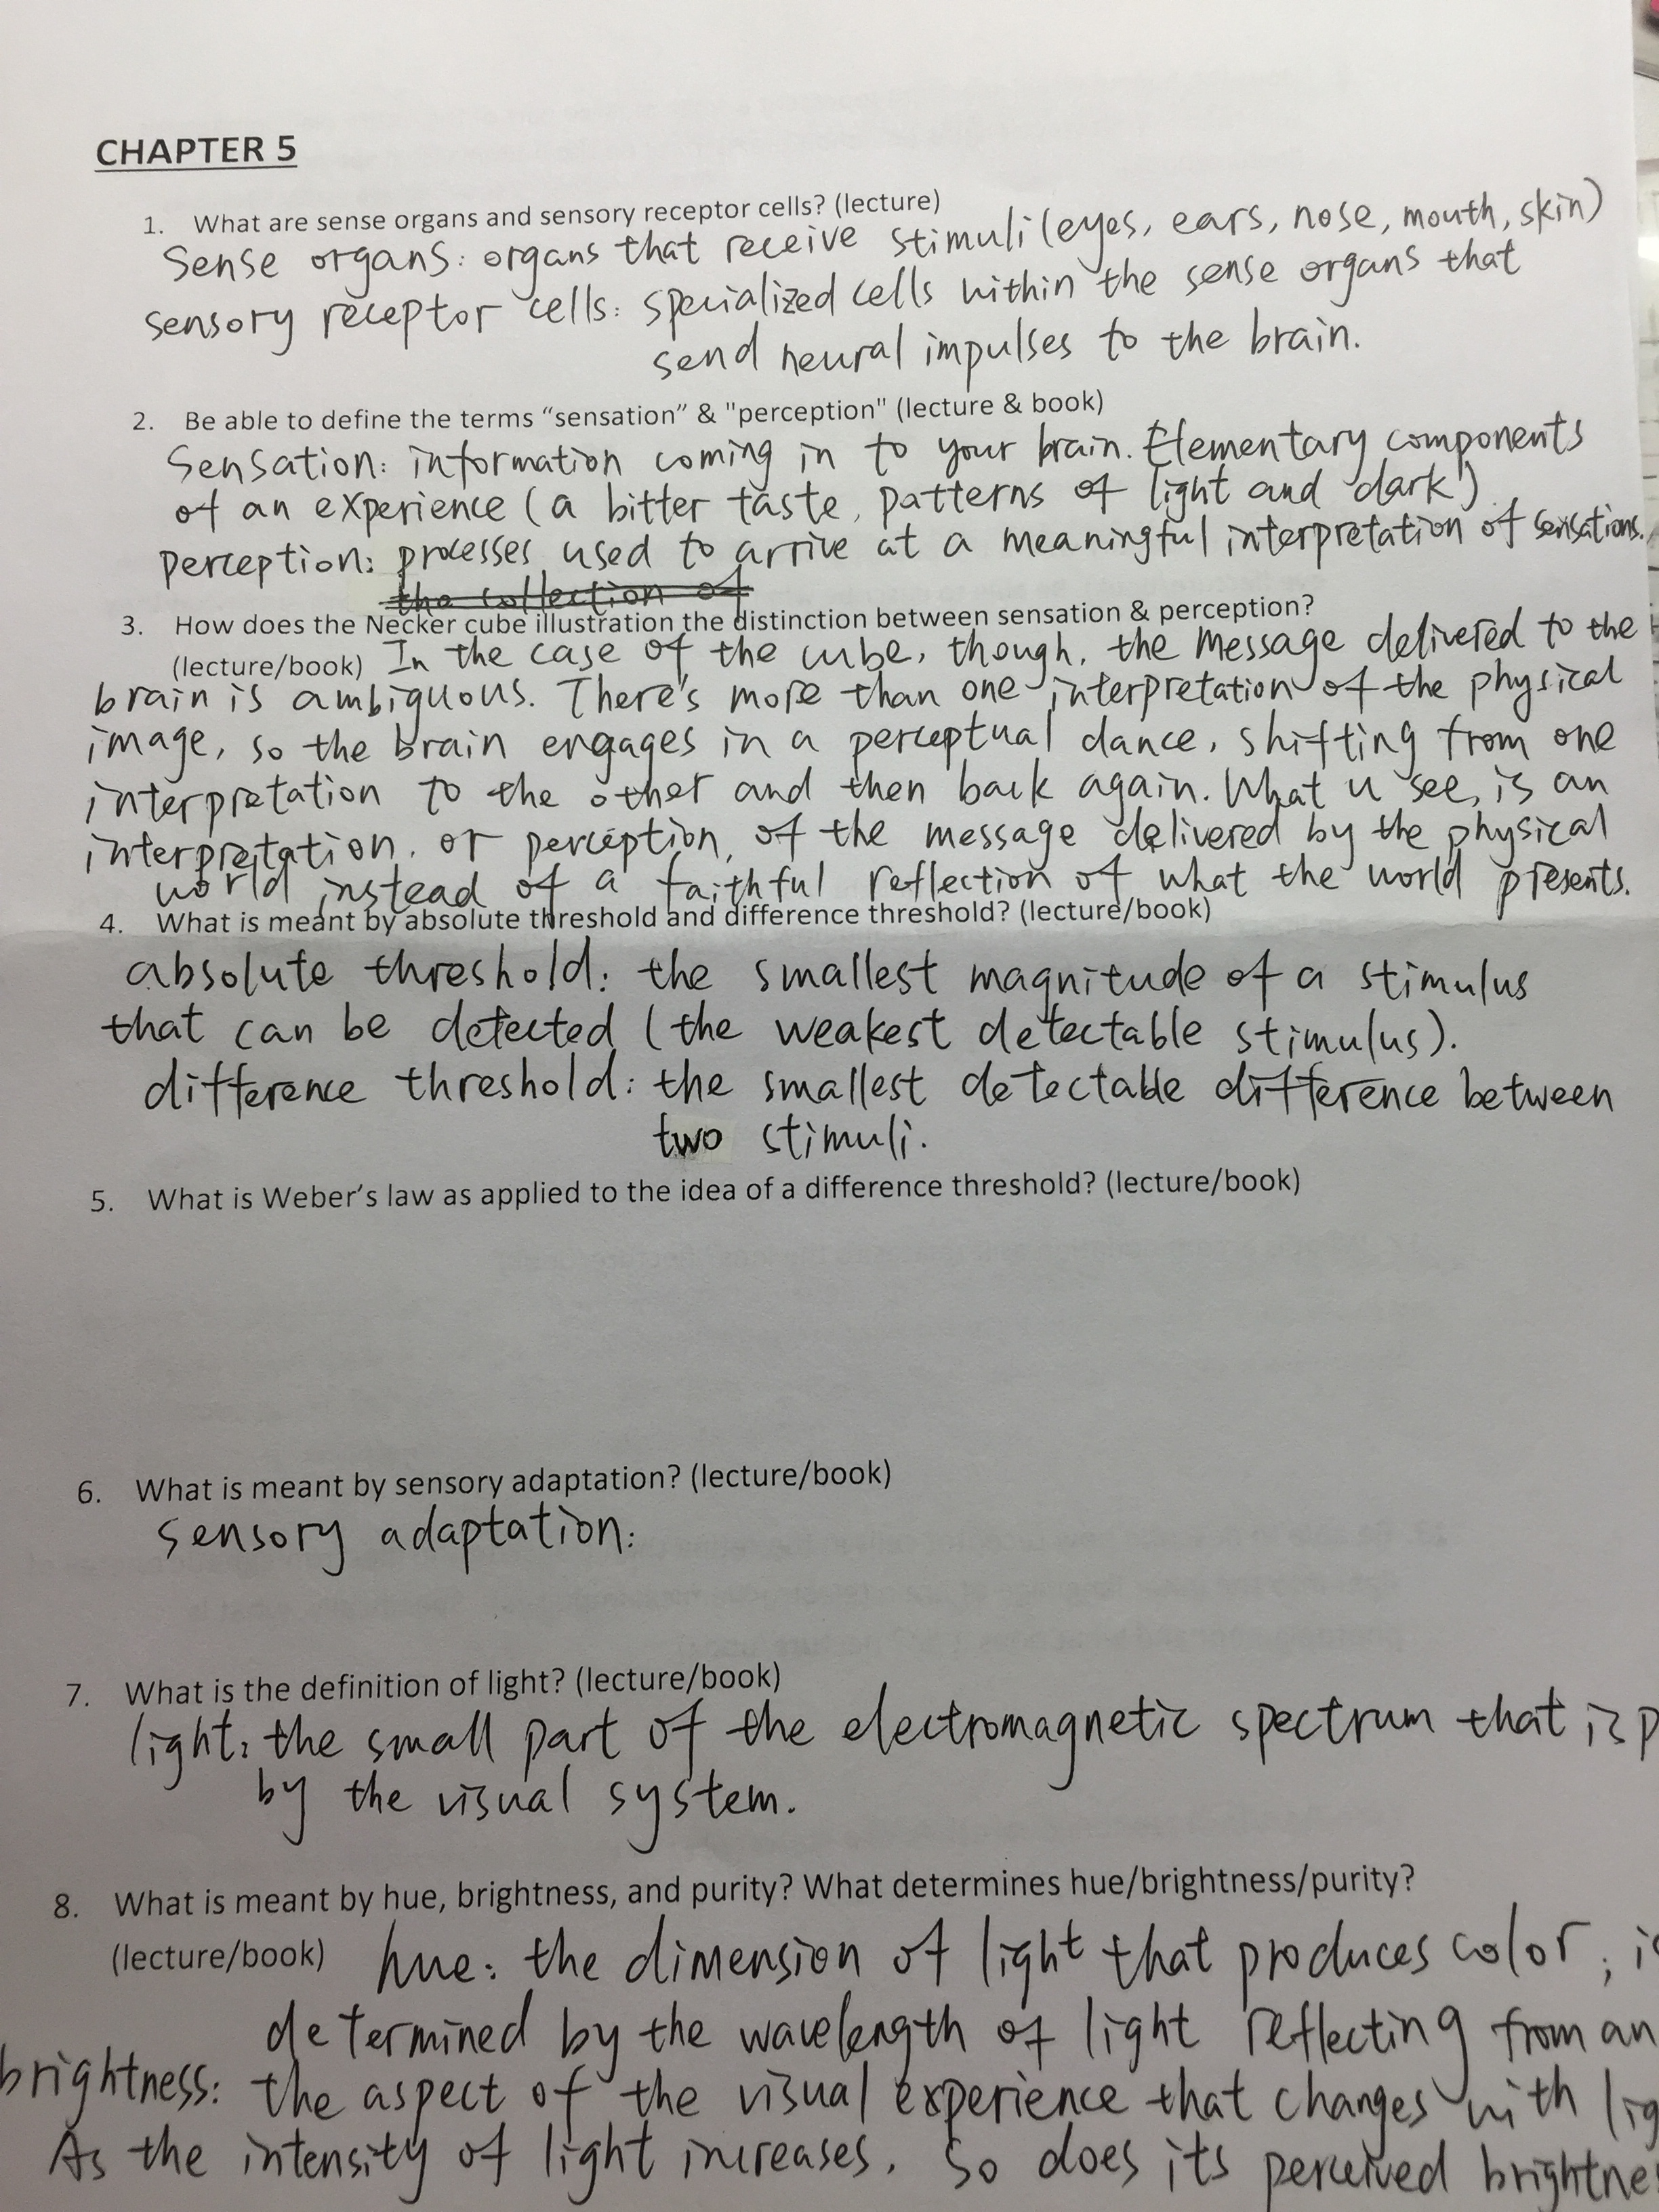 CHAPTER 5
1. What are sense organs and sensory receptor cells? (lecture)
Sense organs: organs that receive stimuli (eyes, ears, nose, mouth, skin)
sensory receptor cells: specialized cells within the sense organs that
send neural impulses to the brain.
2. Be able to define the terms “sensation” & "perception" (lecture & book)
Sensation: information coming in to your brain. Elementary components
of an experience (a bitter taste, patterns of light and dark)
perception: processes used to arrive at a meaningful interpretation of sensations.
the collection of
3. How does the Necker cube illustration the distinction between sensation & perception?
(lecture/book) In the case of the cube, though, the message delivered to the
brain is ambiguous. There's more than one interpretation of the physical
image, so the brain engages in a perceptual dance, shifting from one
interpretation to the other and then back again. What u see, is an
interpretation, or perception, of the message delivered by the physical
world instead of a faithful reflection of what the world presents.
4. What is meant by absolute threshold and difference threshold? (lecture/book)
absolute threshold: the smallest magnitude of a stimulus
that can be detected (the weakest detectable stimulus).
difference threshold: the smallest detectable difference between
two stimuli.
5. What is Weber’s law as applied to the idea of a difference threshold? (lecture/book)
6. What is meant by sensory adaptation? (lecture/book)
sensory adaptation:
7. What is the definition of light? (lecture/book)
light: the small part of the electromagnetic spectrum that is p
by the visual system.
8. What is meant by hue, brightness, and purity? What determines hue/brightness/purity?
(lecture/book) hue: the dimension of light that produces color; is
determined by the wavelength of light reflecting from an
brightness: the aspect of the visual experience that changes with lig
As the intensity of light increases, so does its perceived brightne